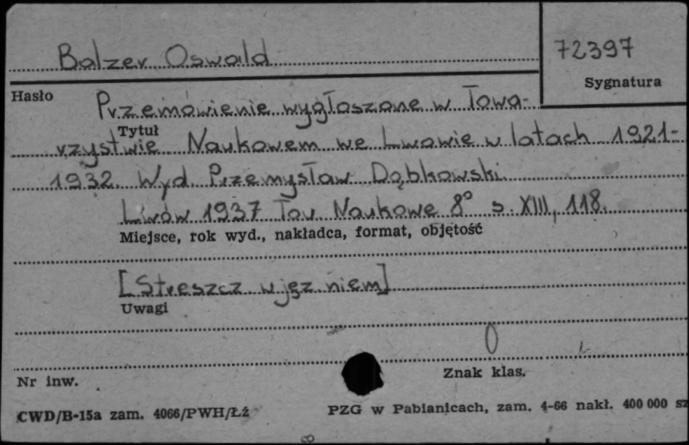 Balzer Oswald
72397
Sygnatura
Hasło
Przemówienie wygłoszone w Towa-
Tytuł
rzystwie Naukowem we Lwowie w latach 1921-
1932. Wyd. Przemysław Dąbkowski
Lwów 1937 Tow Naukowe 8° s. XIII, 118.
Miejsce, rok wyd., nakładca, format, objętość
[Streszcz w jęz niem]
Uwagi
Nr inw.
Znak klas.
CWD/B-15a zam. 4066/PWH/Łż
PZG w Pabianicach, zam. 4-66 nakł. 400 000 sz